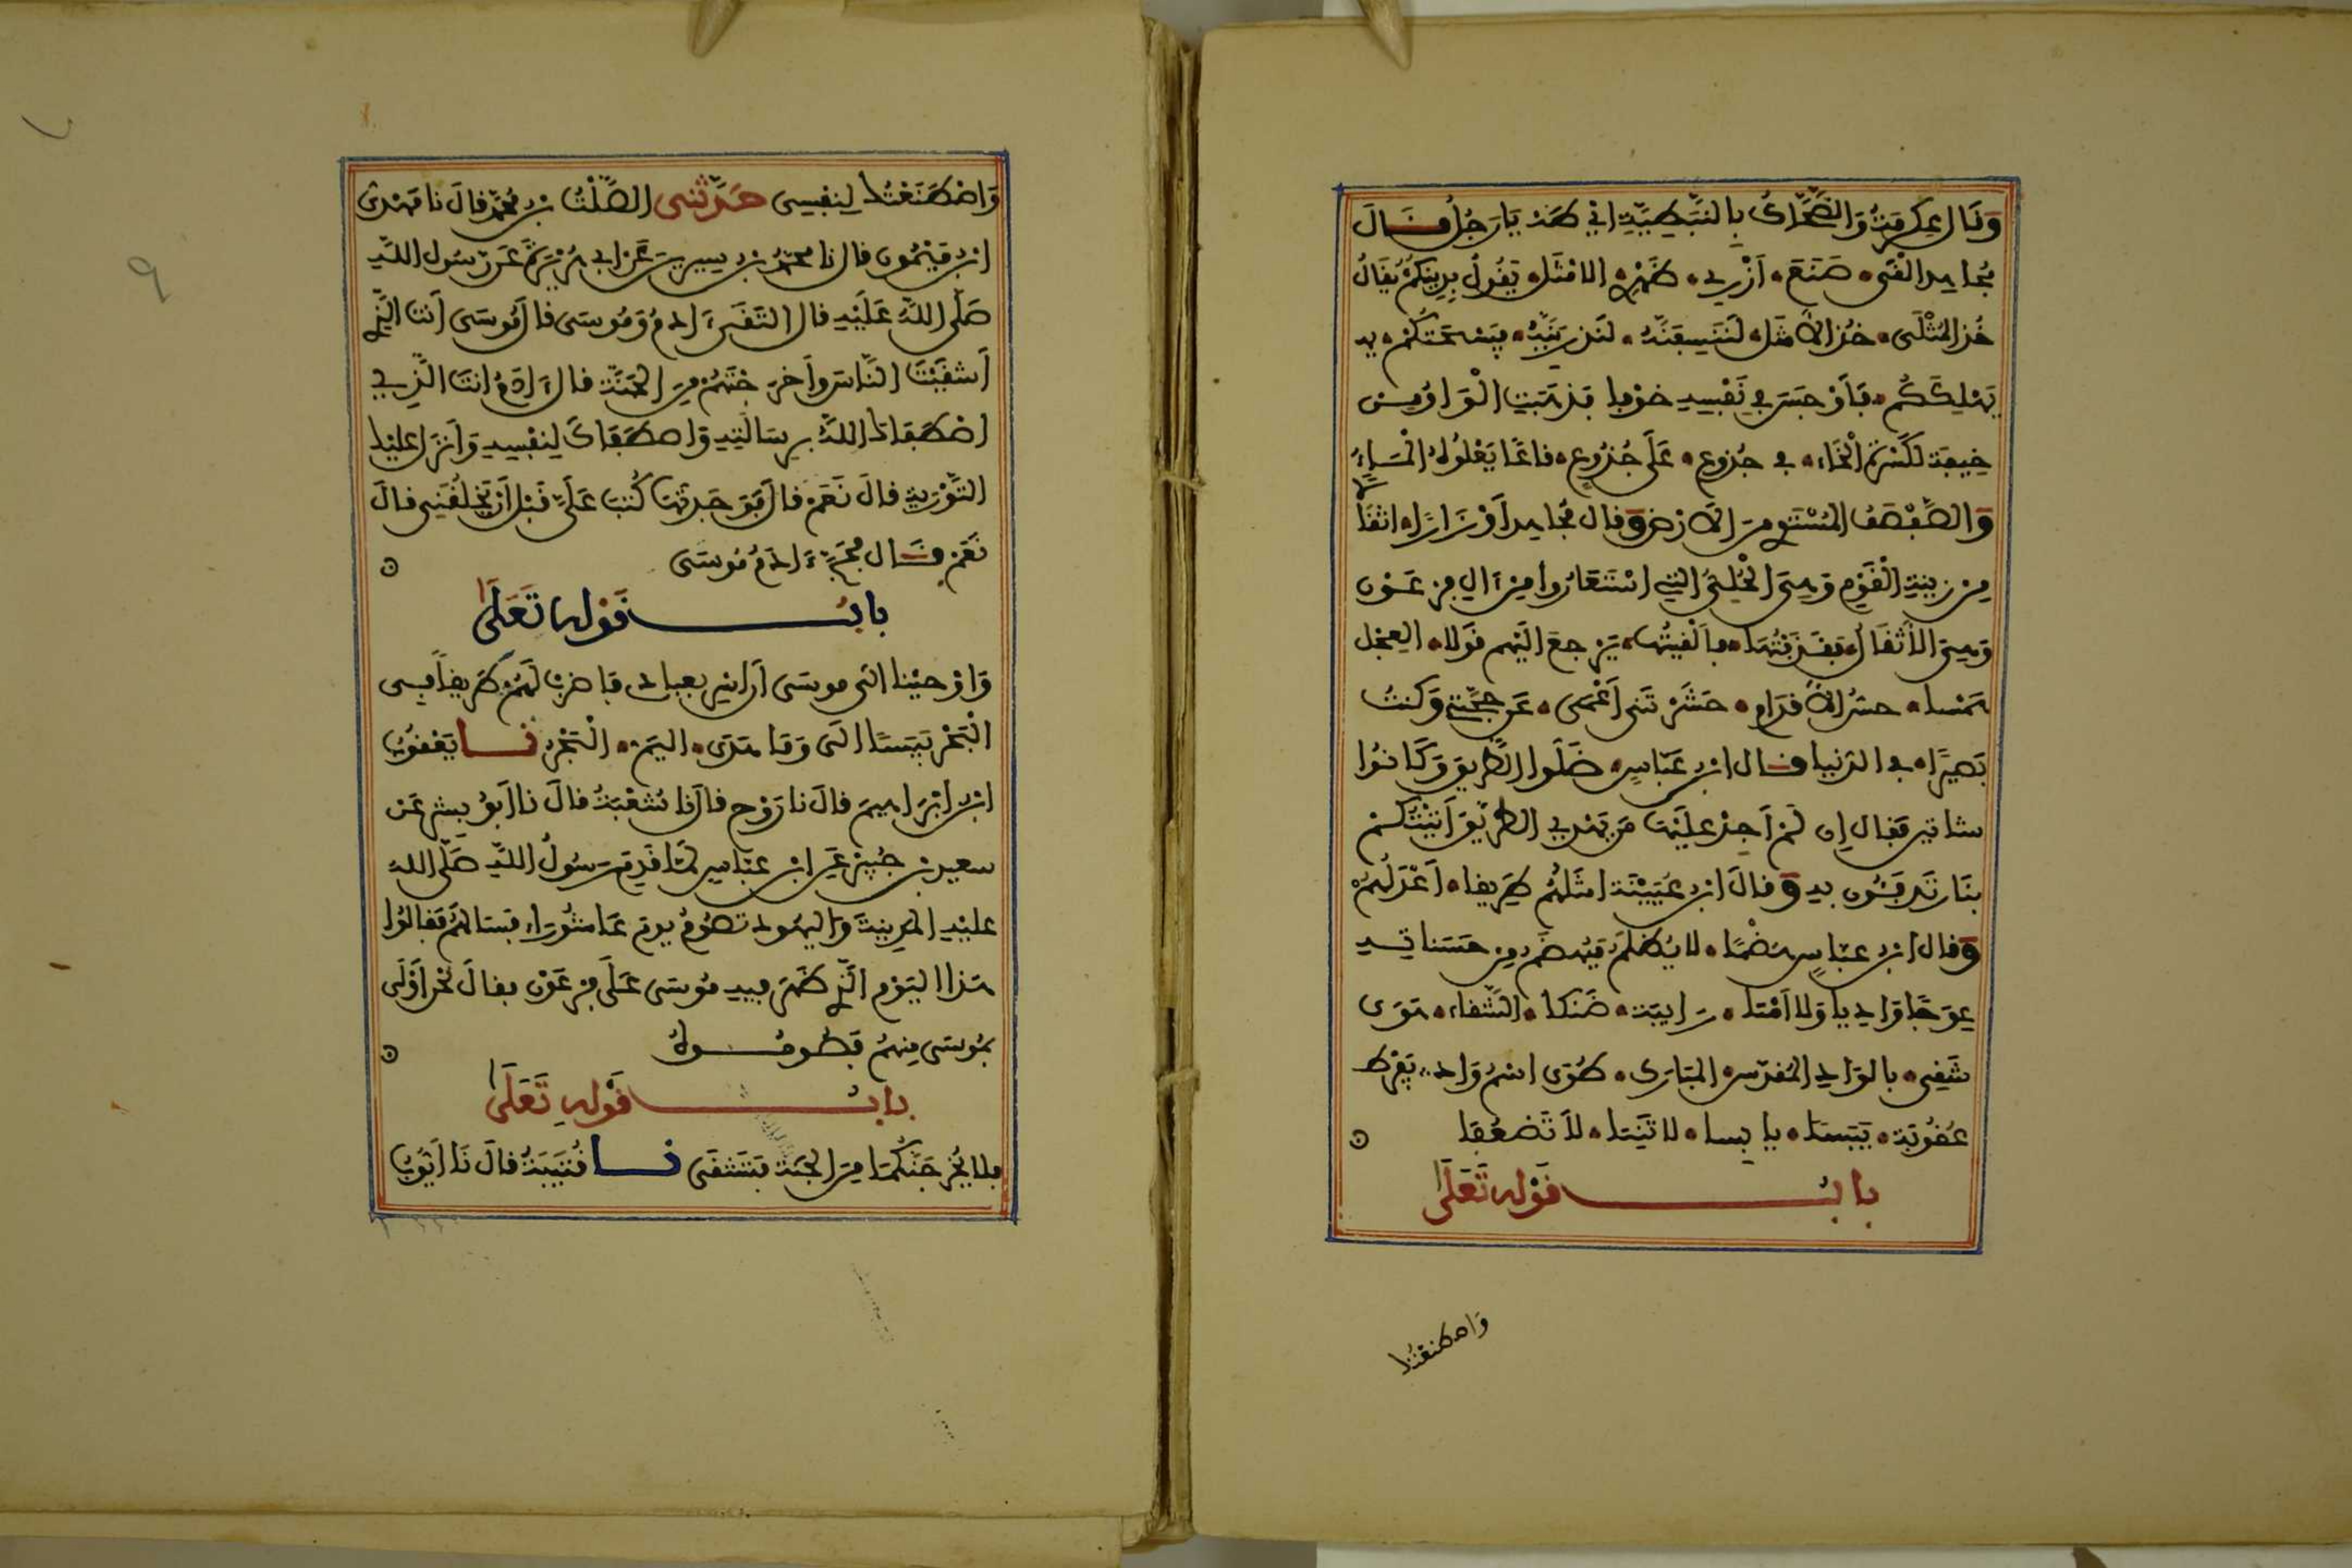 وَقَالَ عِكْرِمَةُ وَالضَّحَّاكُ بِالنَّبَطِيَّةِ اي طَهَ يَا رَجُلُ قَالَ
مُجاهِد الْقَى صَنَعَ أَزْرِي ظَهْرِي الامْثَل يَقُولُ بِدِينِكُمْ يُقَالُ
خُذِ المُثْلَى خُذِ الأَمْثَل لَنَنْسِفَنَّهُ لَنُذْرِيَنَّهُ فَيَسْحَتَكُمْ
يُهْلِكَكُم فَأَوْجَسَ فِي نَفْسِهِ خوْفا فَذَهَبَتِ الْوَاوُ مِن
خِيفة لكَسْرَةِ الْخَاء في جُذوعِ عَلَى جُذُوعِ قاعًا يَعْلُوهُ الْمَاءُ
وَالصَّفْصَفُ المُسْتَوِي مِنَ الأَرْضِ وقال مُجاهِد أَوْزَارًا اثقَالًا
مِن زِينَةِ الْقَوْمِ وَهِيَ الحُلِيُّ التِي اسْتَعَارُوا مِن آلِ فِرْعَوْن
وَهِيَ الأَثقَالُ فَقَذَفْتُهَا فألْقَيْتُها يَرْجِعُ الَيْهِم قَولا العِجْل
هَمْسا حسُّ الأَقدَامِ حَشَرْتَنِي أَعْمَى عَن حُجَّتِي وَكنتُ
بَصِيرًا في الدُّنيا قال ابن عَبّاسٍ ضَلُّوا الطَّرِيقَ وَكَانُوا
شاتين فقال إن لَمْ أَجِدْ عَلَيْهَا مَن يَهْدِي الطَّرِيقَ آتِيْتُكُمْ
بنَارٍ تَدفَئُون بِهِ وقالَ ابن عُيَيْنَة امثَلُهُم طَرِيقَة أَعْدَلُهُمْ
وقال ابن عبّاسٍ هَضْمًا لا يُظْلَمُ فيُهضَم مِن حَسَناتِهِ
عِوَجًا وَادِيا وَلا أَمْتا رَابِيَة ضَنْكا الشَّقاء هَوَى
شَقِيَ بالوَادِ المُقدَّس المُبَارَك طُوًى اسْمُ وَادٍ يَفْرُط
عُقُوبَة يَبَسا يابِسا لا تَنِيَا لا تَضْعُفا
بابُ قَوْلِهِ تَعَلَى
وَاصْطَنَعْتُكَ
وَاصْطَنَعْتُكَ لِنَفْسِي حَدَّثَنِي الصَّلْتُ بْن مُحَمَّد قالَ نا مَهْدِيُّ
ابن مَيْمُون قال نا مُحَمَّدُ بن سِيرِين عَن أبي هُرَيْرَةَ عَن رَسُول اللَّهِ
صَلَّى اللهُ عَلَيْهِ قال التَقَى آدَمُ وَمُوسَى قالَ مُوسَى أنتَ الَّذِي
أَشقَيْتَ النَّاسَ وأخرَجْتَهُمْ مِنَ الجَنَّة قالَ آدَمُ انتَ الَّذِي
اصْطَفَاكَ اللَّهُ بِرِسَالَتِهِ وَاصطَفَاكَ لِنَفْسِهِ وَأَنزَلَ عَلَيْكَ
التَّوْرَاةَ قالَ نَعَمْ قالَ فَوَجَدتَها كُتِبَ عَلَيَّ قَبْلَ أَن يَخْلُقَنِي قالَ
نَعَمْ قَالَ فحَجَّ آدَمُ مُوسَى
بابُ قَوْلِهِ تَعَلَى
وَأَوْحَيْنا إلَى موسَى أَن اسْرِ بِعِبادِي فاضرِبْ لَهُمْ طَرِيقًا في
الْبَحْرِ يَبَسًا الَى وَمَا هَدَى اليَمّ الْبَحْر نا يَعْقُوبُ
ابن ابْرَاهِيمَ قالَ نا رَوْح قالَ نا شُعْبَةُ قالَ نا أَبُو بِشْرٍ عَن
سعيد بن جُبَيْرٍ عَن ابن عبّاسٍ لَمَّا قَدِمَ رَسُولُ اللَّهِ صَلَّى اللهُ
عليْهِ المَدِينَةَ وَاليَهُود تصُومُ يومَ عَاشُورَاءَ فسَالَهُمْ فَقالُوا
هَذَا اليَوْم الَّذِي ظَهَرَ فِيهِ مُوسَى عَلَى فِرْعَوْن فقالَ نَحْنُ أَوْلَى
بمُوسَى مِنهُمْ فَصُومُوهُ
بابُ قَوْلِهِ تَعَلَى
فلا يُخْرِجَنَّكُمَا مِنَ الجَنَّة فَتَشْقَى نا قُتَيْبَةُ قالَ نَا أَيُّوبُ